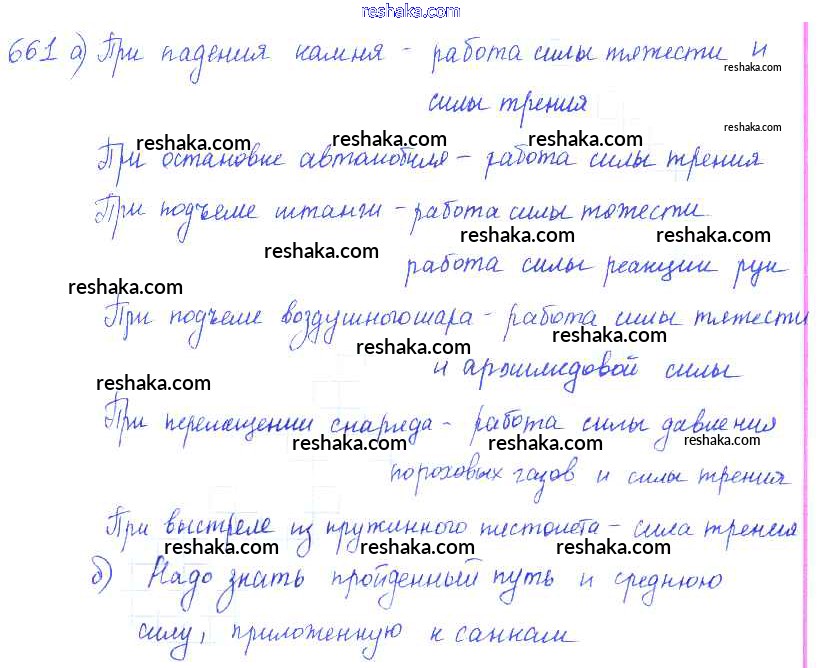 reshaka.com
661 а) При падения камня - работа силы тяжести и
reshaka.com
силы трения
reshaka.com
reshaka.com reshaka.com reshaka.com
При остановке автомобиля - работа силы трения
При подъеме штанги - работа силы тяжести
reshaka.com reshaka.com reshaka.com
работа силы реакции рук
reshaka.com
При подъеме воздушного шара - работа силы тяжести
reshaka.com reshaka.com
и архимедовой силы
reshaka.com
При перемещении снаряда - работа силы давления
reshaka.com reshaka.com reshaka.com
пороховых газов и силы трения
При выстреле из пружинного пистолета - сила трения
reshaka.com reshaka.com reshaka.com
б) Надо знать пройденный путь и среднюю
силу, приложенную к санкам